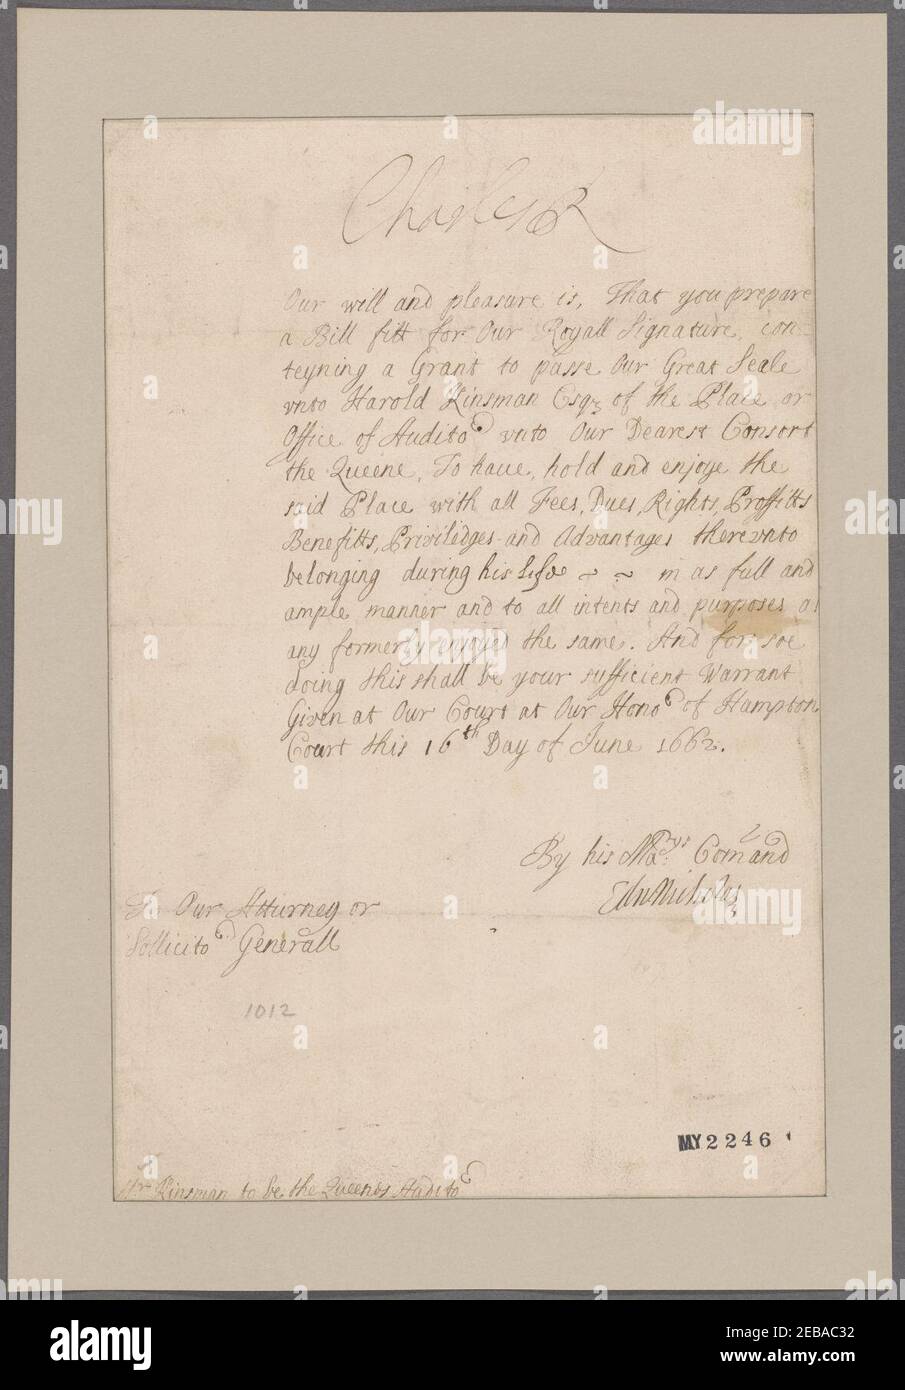 Charles R
Our will and pleasure is, That you prepare
a Bill fitt for Our Royall Signature, con-
teyning a Grant to passe Our Great Seale
vnto Harold Kinsman Esqr of the Place or
Office of Auditor vnto Our Dearest Consort
the Queene, To haue, hold and enjoye the
said Place with all Fees, Dues, Rights, Proffitts
Benefitts, Priviledges and Advantages therevnto
belonging during his Life ~ ~ in as full and
ample manner and to all intents and purposes as
any formerly enjoyed the same. And for soe
doing this shall be your sufficient Warrant
Given at Our Court at Our Honor of Hampton
Court this 16th Day of June 1662.
By his Matys Comand
Edw Nicholas
To Our Atturney or
Sollicitor Generall
1012
MY 2246
Mr Kinsman to be the Queenes Auditor
alamy
Image ID: 2EBAC32
www.alamy.com